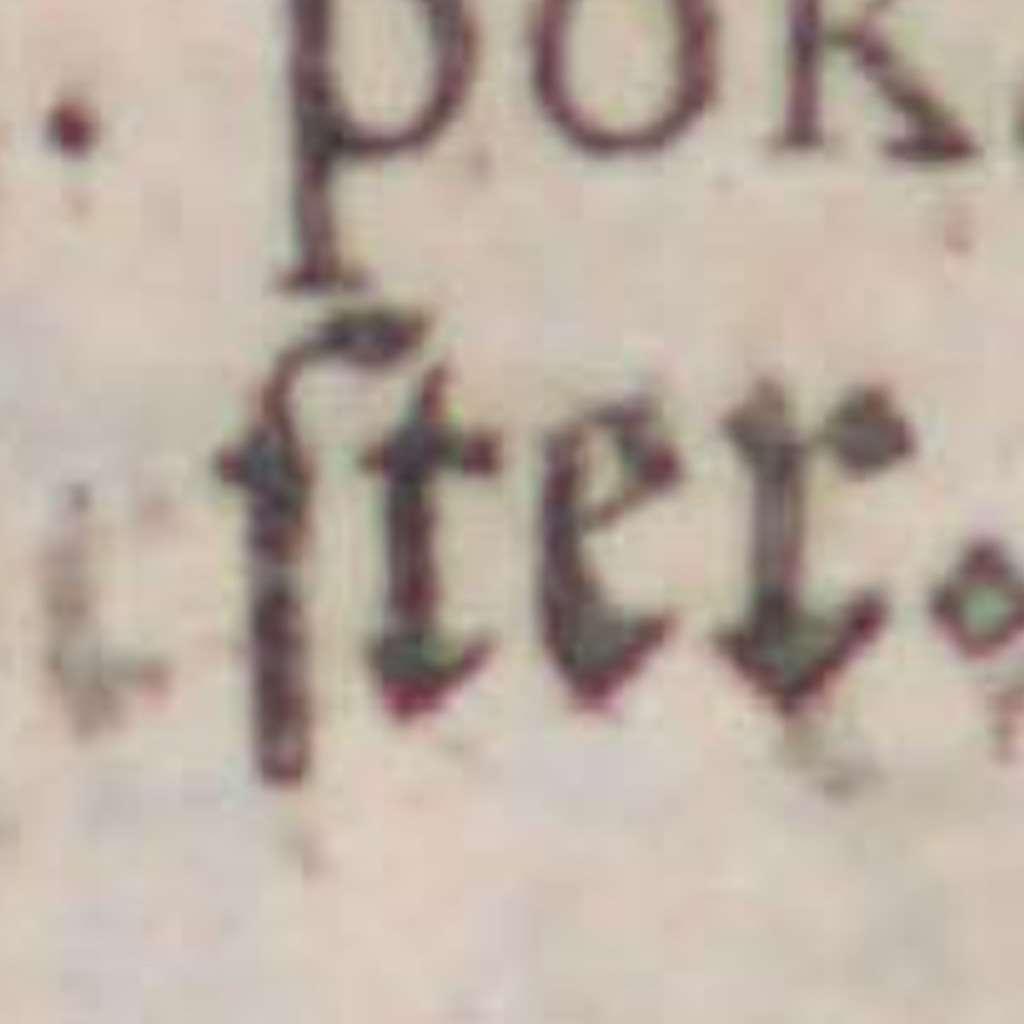 . pok
ſter.